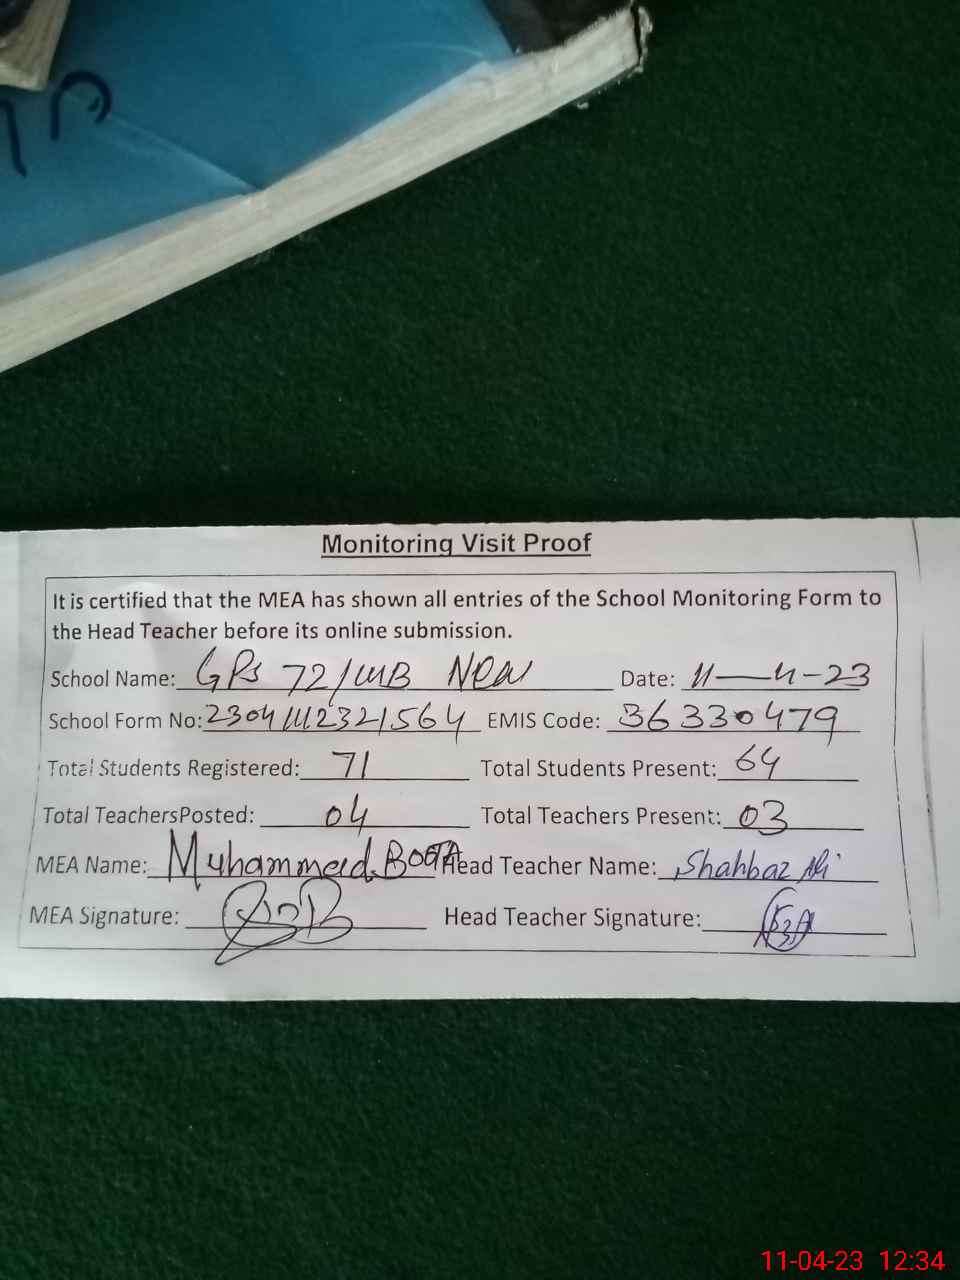 Monitoring Visit Proof
It is certified that the MEA has shown all entries of the School Monitoring Form to
the Head Teacher before its online submission.
School Name: GPS 72/MB New Date: 11-4-23
School Form No: 2304111232 1564 EMIS Code: 36330479
Total Students Registered: 71 Total Students Present: 64
Total TeachersPosted: 04 Total Teachers Present: 03
MEA Name: Muhammad BOOTA Head Teacher Name: Shahbaz Ali
MEA Signature: Head Teacher Signature:
11-04-23 12:34